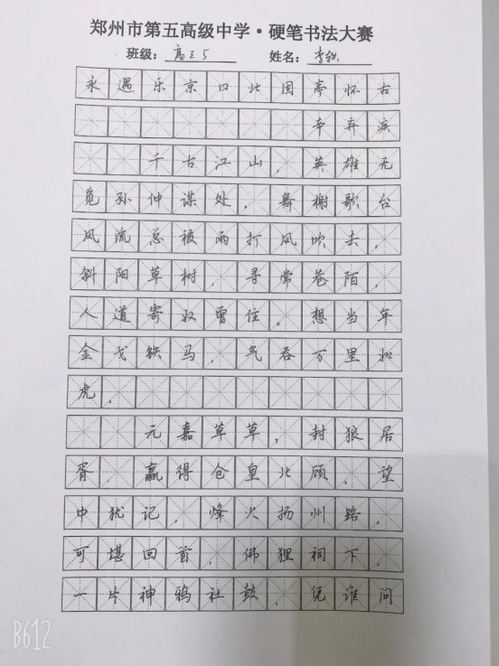 郑州市第五高级中学·硬笔书法大赛
班级：高三5 姓名：李
永遇乐京口北固亭怀古
辛弃疾
千古江山，英雄无
觅孙仲谋处。舞榭歌台
风流总被雨打风吹去。
斜阳草树，寻常巷陌，
人道寄奴曾住。想当年
金戈铁马，气吞万里如
虎。
元嘉草草，封狼居
胥，赢得仓皇北顾，望
中犹记，烽火扬州路，
可堪回首，佛狸祠下，
一片神鸦社鼓。凭谁问
B612